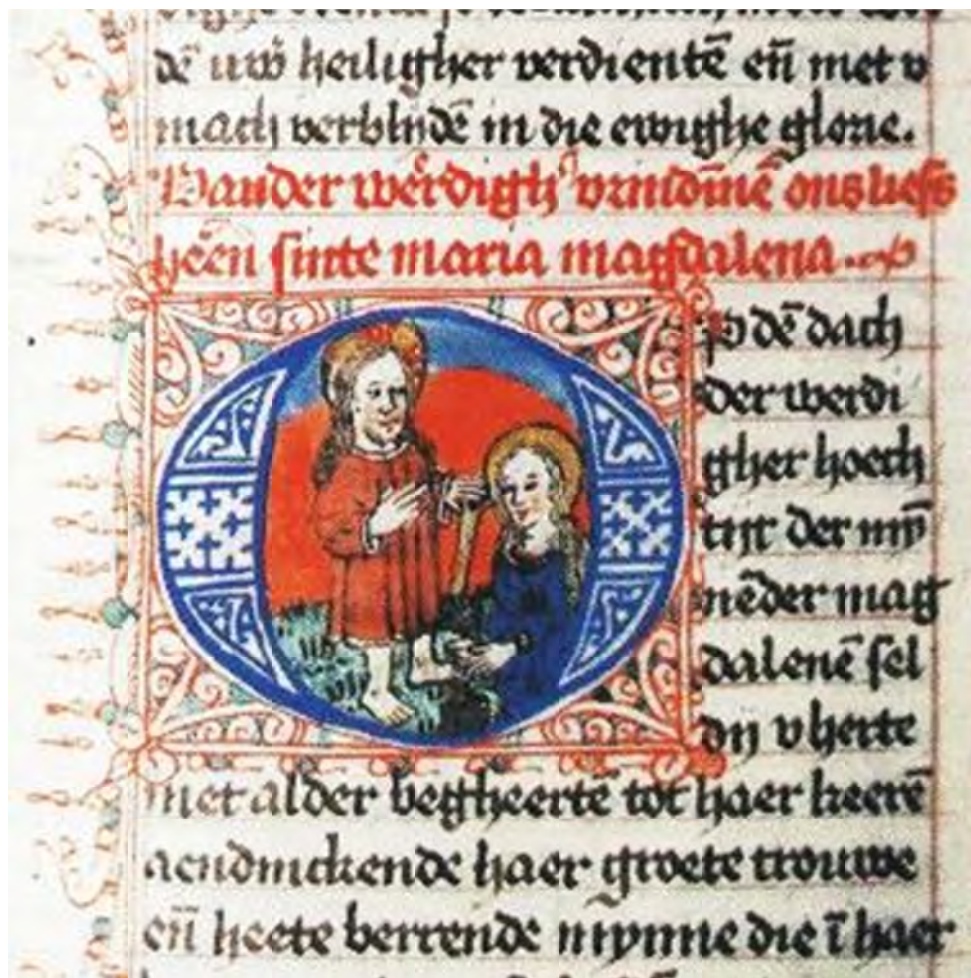 dē uwē heiligher verdientē eñ met v
mach verblydē in die ewighe glorie.
Vander werdigh vrindīnē ons liefs
heēn sinte maria magdalena
Op dē dach
der werdi
gher hoech
tijt der my
nēder mag
dalenē sel
dij v herte
met alder begheertē tot haer keerē
aendinckende haer groete trouwe
eñ heete berrende mynne die ī haer